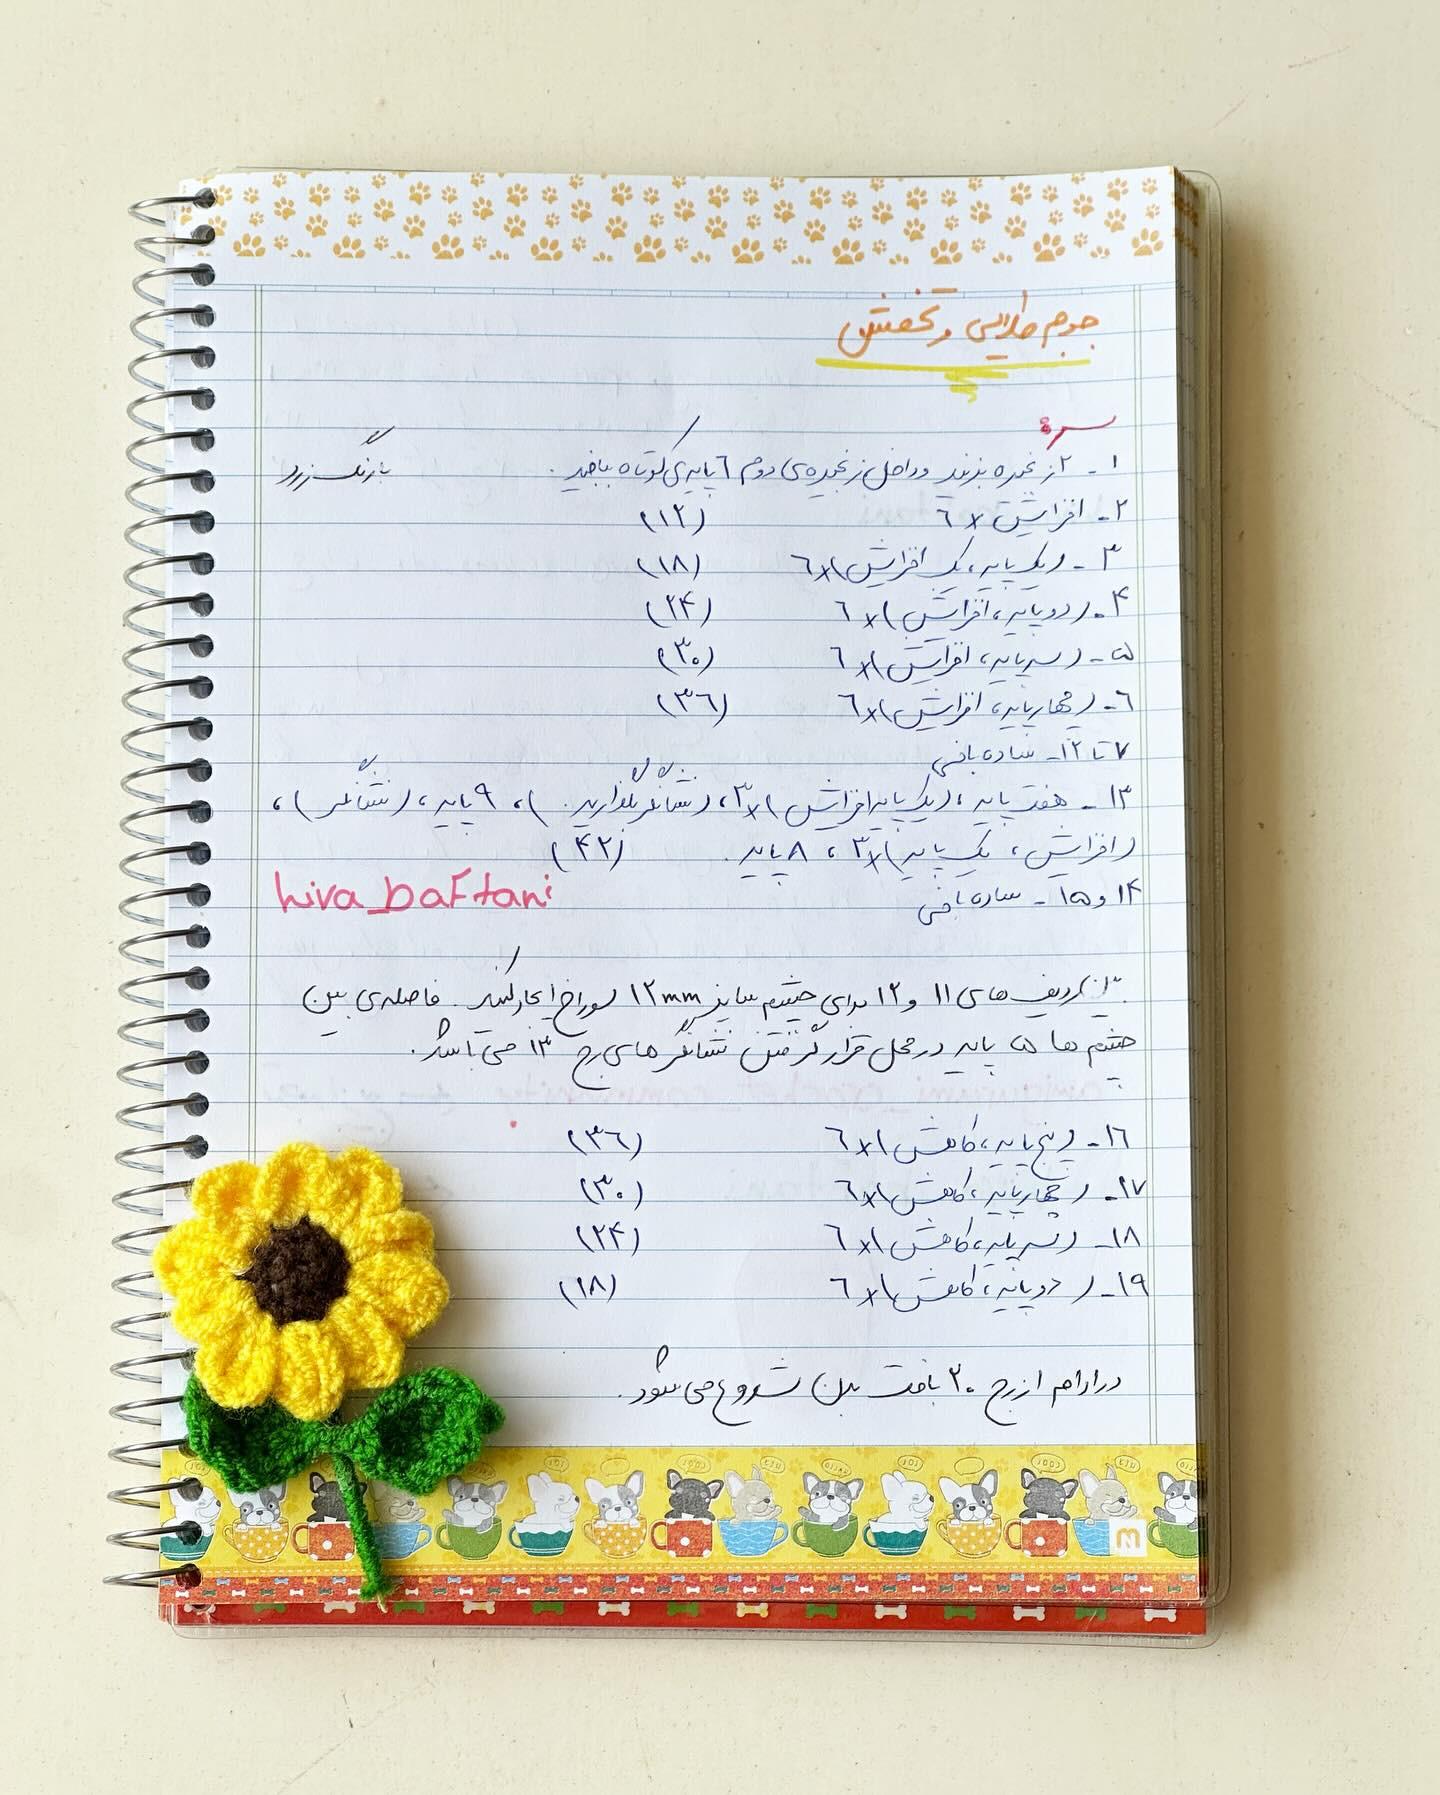 جوجه طلایی و تخمش
سر:
۱- ۲ زنجیره بزنید و داخل زنجیره‌ی دوم ۶ پایه‌ی کوتاه ببافید. با رنگ زرد
۲- افزایش x ۶ (۱۲)
۳- (یک پایه، یک افزایش) x ۶ (۱۸)
۴- (دو پایه، افزایش) x ۶ (۲۴)
۵- (سه پایه، افزایش) x ۶ (۳۰)
۶- (چهار پایه، افزایش) x ۶ (۳۶)
۷ تا ۱۲- ساده بافی
۱۳- هفت پایه، (یک پایه افزایش) x ۳، (نشانگر بگذارید.)، ۹ پایه، (نشانگر)،
(افزایش، یک پایه) x ۳، ۸ پایه. (۴۲)
۱۴ و ۱۵- ساده بافی
hiva_baftani
بین ردیف های ۱۱ و ۱۲ برای چشم سایز ۱۲mm سوراخ ایجاد کنید. فاصله‌ی بین
چشم ها ۵ پایه در محل قرار گرفتن نشانگر های رج ۱۳ می باشد.
۱۶- (پنج پایه، کاهش) x ۶ (۳۶)
۱۷- (چهار پایه، کاهش) x ۶ (۳۰)
۱۸- (سه پایه، کاهش) x ۶ (۲۴)
۱۹- (دو پایه، کاهش) x ۶ (۱۸)
در ادامه از رج ۲۰ بافت بدن شروع می شود.